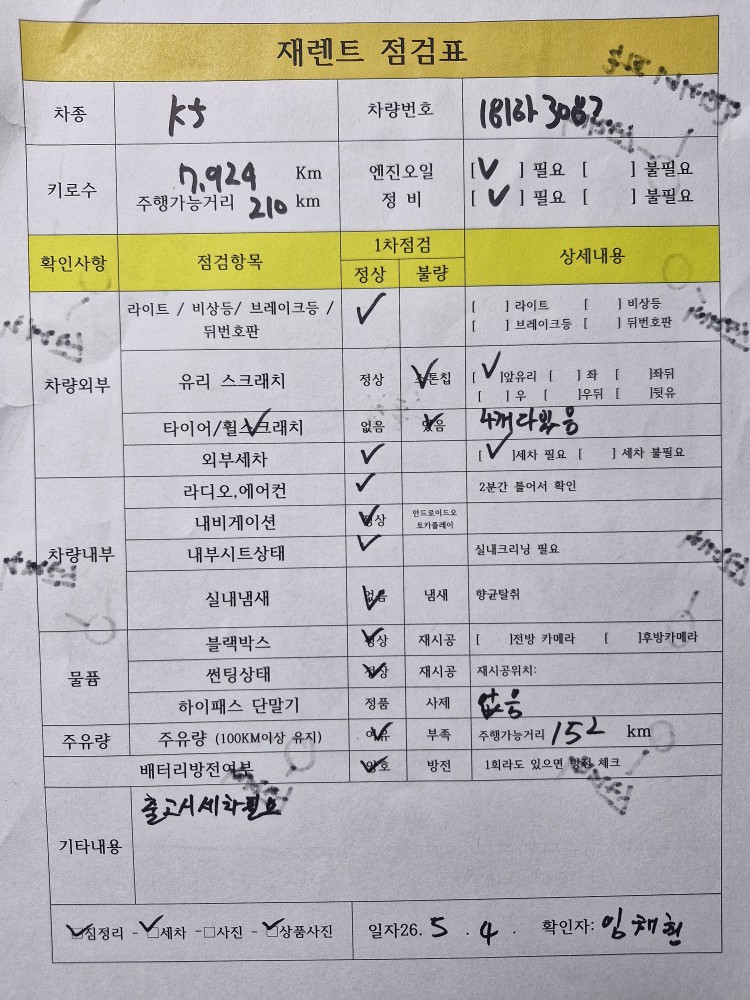 재렌트 점검표
차종 K5 차량번호 181하 3082
키로수 7,924 Km 엔진오일 [✓] 필요 [ ] 불필요
주행가능거리 210 km 정 비 [✓] 필요 [ ] 불필요
확인사항 점검항목 1차점검 상세내용
정상 불량
차량외부 라이트 / 비상등/ 브레이크등 / 뒤번호판 ✓ [ ] 라이트 [ ] 비상등
[ ] 브레이크등 [ ] 뒤번호판
유리 스크래치 정상 스톤칩 [✓]앞유리 [ ] 좌 [ ]좌뒤
[ ] 우 [ ]우뒤 [ ]뒷유
타이어/휠스크래치 없음 있음 4개다있음
외부세차 ✓ [✓]세차 필요 [ ] 세차 불필요
차량내부 라디오,에어컨 ✓ 2분간 틀어서 확인
내비게이션 정상 안드로이드오토카플레이
내부시트상태 ✓ 실내크리닝 필요
실내냄새 없음 냄새 향균탈취
물품 블랙박스 정상 재시공 [ ]전방 카메라 [ ]후방카메라
썬팅상태 정상 재시공 재시공위치:
하이패스 단말기 정품 사제 없음
주유량 주유량 (100KM이상 유지) 여유 부족 주행가능거리 152 km
배터리방전여부 양호 방전 1회라도 있으면 방전 체크
기타내용 출고시세차필요
☑짐정리 - ☑세차 - □사진 - ☑상품사진 일자26. 5 . 4 . 확인자: 임채헌